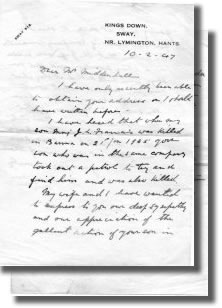 SWAY 218.
KINGS DOWN,
SWAY,
NR. LYMINGTON, HANTS
10-2-47
Dear Mr
I have only recently been able
to obtain your address or I should
have written before.
I have heard that when my
son J. L. was killed
in Burma on 1945 your
son who was in the same company
took out a patrol to try and
find him and was also killed.
My wife and I have wanted
to express to you our deep sympathy
and our appreciation of the
gallant action of your son in